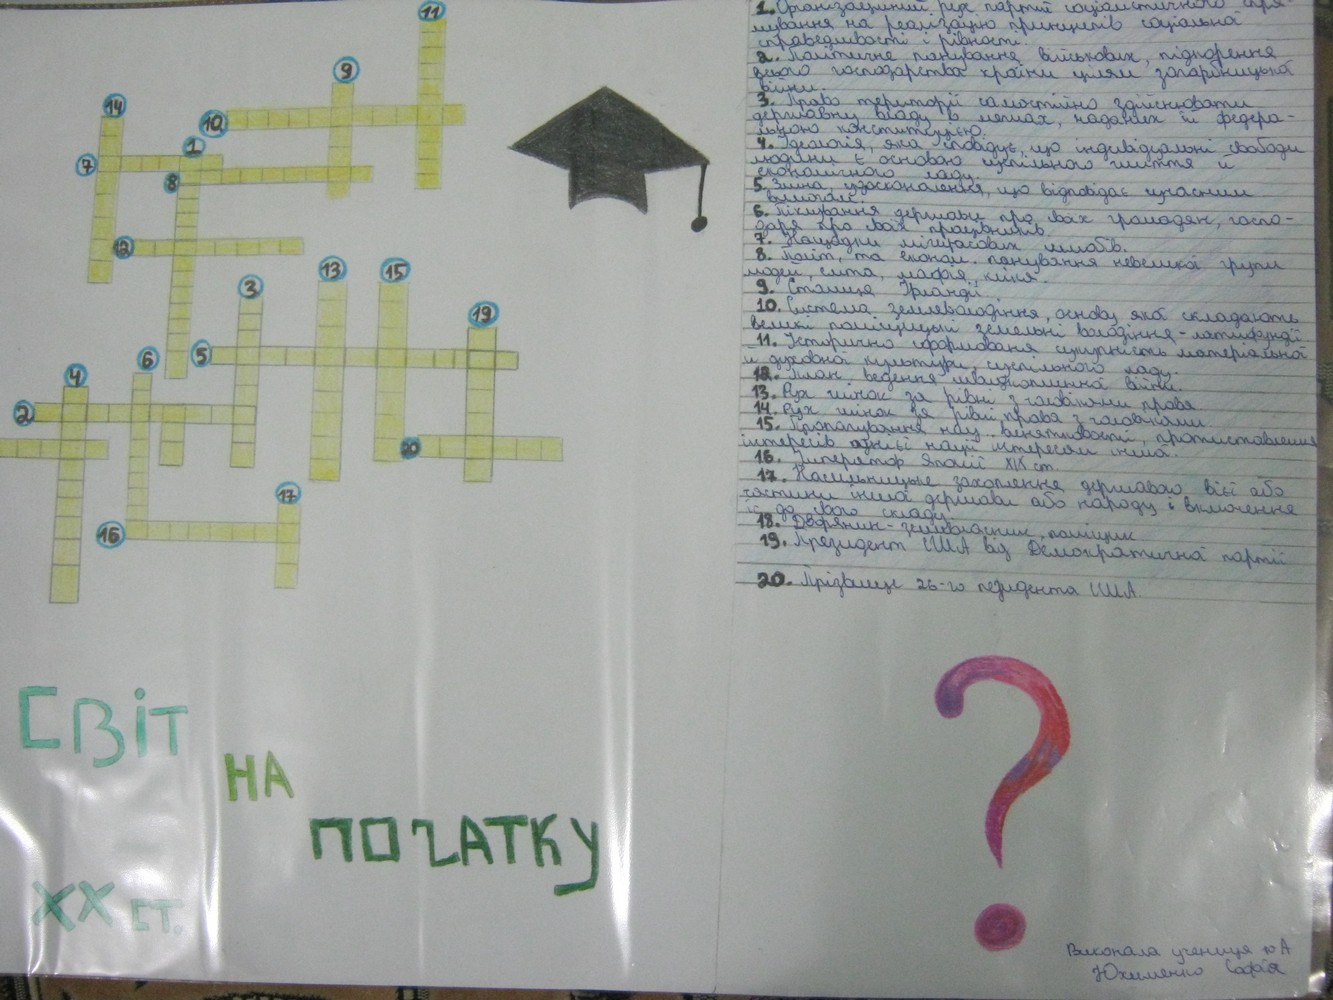 11
9
14
10
1
7
8
12
13
15
3
19
6
5
4
2
20
17
16
СВІТ
НА
ПОЧАТКУ
ХХ СТ.
1. Організаційний рух партій соціалістичного спря-
мування на реалізацію принципів соціальної
справедливості і рівності.
2. Політичне панування військових, підпорення
всього господарства країни цілям загарбницької
війни.
3. Право території самостійно здійснювати
державну владу в межах, наданих їй федера-
льною конституцією.
4. Ідеологія, яка сповідує, що індивідуальні свободи
людини є основою суспільного життя й
економічного ладу.
5. Зміна, удосконалення, що відповідає сучасним
вимогам.
6. Піклування держави про своїх громадян, госпо-
даря про своїх працівників.
7. Нащадки міграсових шлюбів.
8. Політ, та економ. панування невеликої групи
людей, еліта, мафія, кліка.
9. Столиця Ірландії.
10. Система землеволодіння, основу якої складають
великі поміщицькі земельні володіння - латифундії
11. Історично сформована сукупність матеріальної
й духовної культури, суспільного ладу.
12. План ведення швидкоплинної війни.
13. Рух жінок за рівні з чоловіками права
14. Рух жінок за рівні права з чоловіками
15. Пропагування нац. винятковості, протиставлення
інтересів однієї нації інтересам іншої.
16. Імператор Японії XIX ст.
17. Насильницьке захоплення державою всієї або
частини іншої держави або народу і включення
їх до свого складу.
18. Дворянин-землевласник, поміщик
19. Президент США від Демократичної партії
20. Прізвище 26-го президента США.
Виконала учениця 10 А
Юхименко Софія